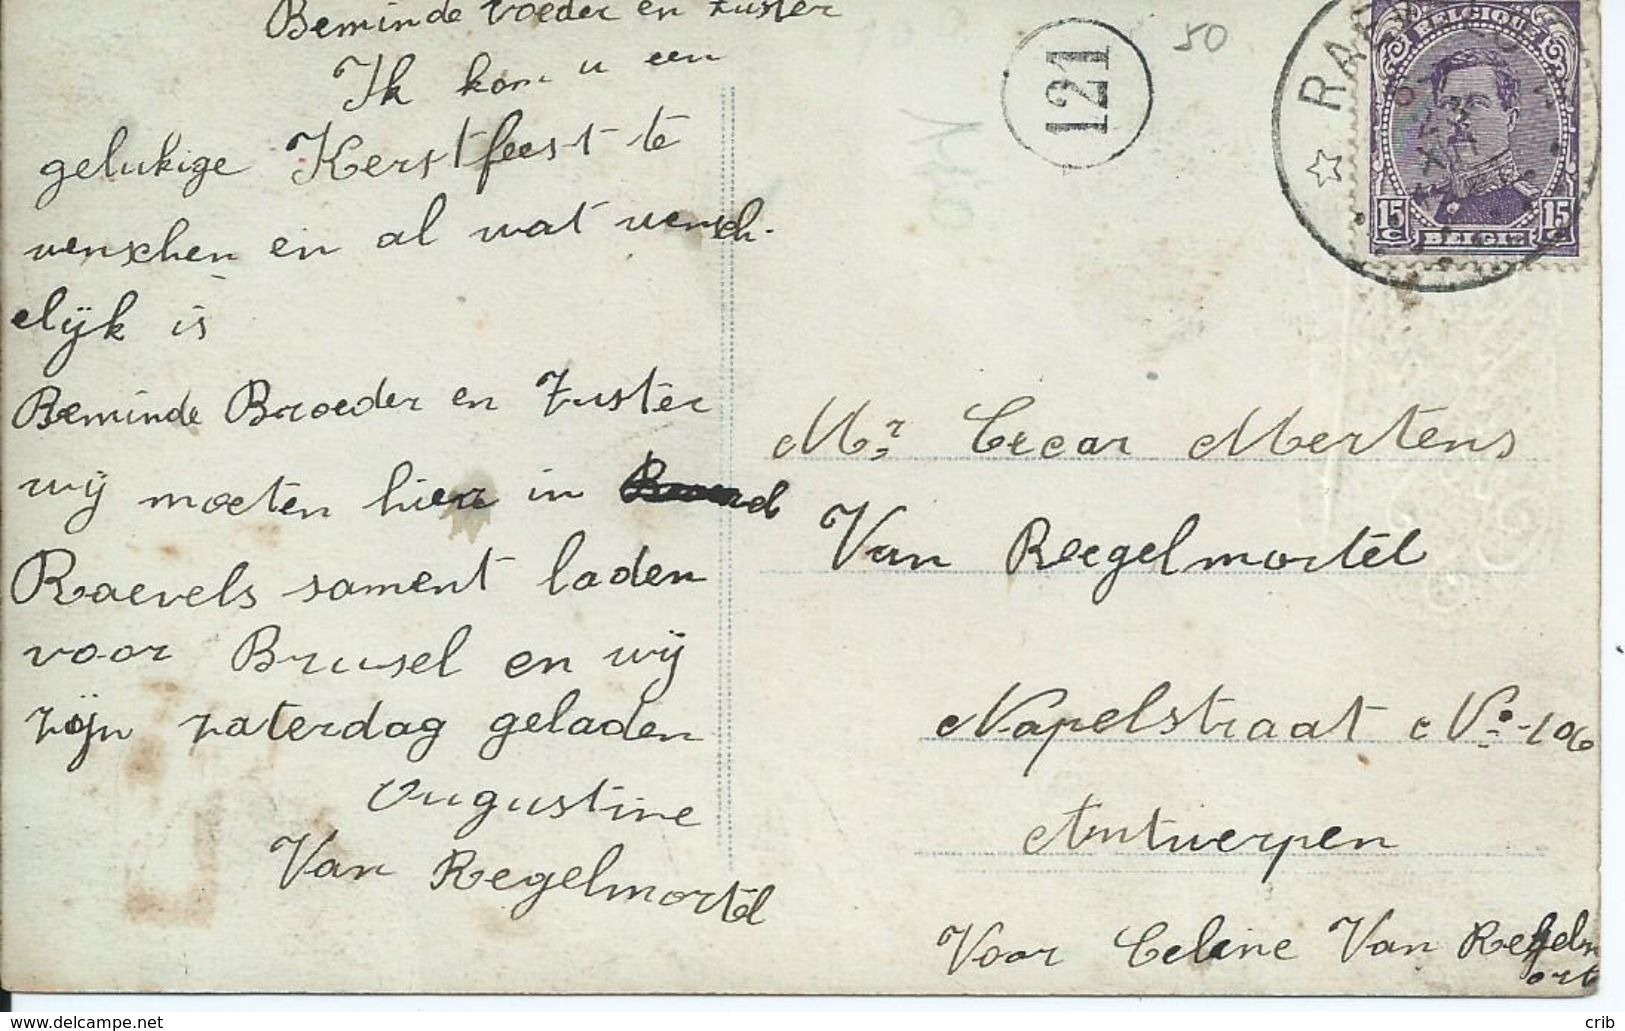 Beminde Broeder en zuster
Ik kom u een
gelukige Kerstfeest te
wenschen en al wat wensch-
elijk is
Beminde Broeder en Zuster
wij moeten hier in
Raevels sament laden
voor Brusel en wij
zijn zaterdag geladen
Augustine
Van Regelmortel
121
50
RA
BELGIQUE
15 C
15 C
BELGIE
Mr Cecar Mertens
Van Regelmortel
Napelstraat No 106
Antwerpen
Voor Celine Van Regelm
ort
http://www.delcampe.net
crib